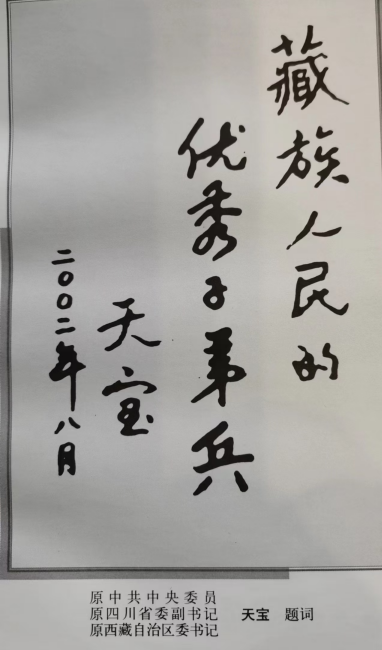 藏族人民的
优秀子弟兵
天宝
二〇〇二年八月
原中共中央委员
原四川省委副书记 天宝 题词
原西藏自治区委书记